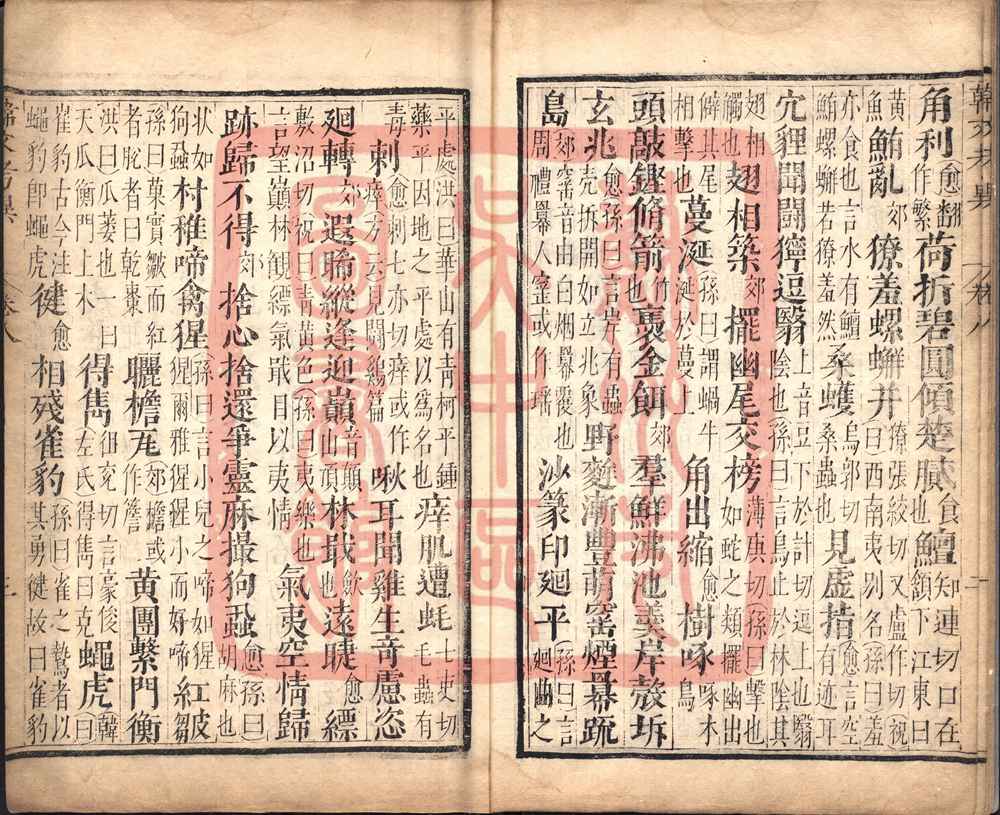 韓文考異 卷八 十
角利(愈)翻作繁荷折碧圓傾楚膩食也鱣知連切口在頷下江東曰
黃魚鮪亂郊獠羞螺蠏并(獠)張絞切又盧作切(祝曰)西南夷別名(孫曰)羞
亦食也言水有鱣鮪螺蠏若獠羞然桑蠖烏郭切桑蟲也見虛指(愈)言空有迹耳
穴貍聞鬭獰逗翳上音豆下於計切逗止也翳陰也(孫)曰言鳥止於林陰其
翅相觸也翅相築郊擺幽尾交搒薄庚切(孫曰)擊也如蛇之類擺幽出
僻其尾相擊也蔓涎(孫曰)謂蝸牛涎於蔓上角出縮愈樹啄啄木鳥
頭敲鏗脩箭竹也裊金餌郊羣鮮沸池羹岸殼坼
玄兆(愈)(孫曰)言岸有蟲殼拆開如立兆象野麰漸豐萌窑煙冪疏
島(郊)窑音由白烟冪覆也周禮冪人窑或作瑤沙篆印廻平(孫曰)言廻曲之
平處洪曰華山有青柯平鍾藥平因地之平處以爲名也痒肌遭蚝七吏切毛蟲有
毒刺(愈)刺七亦切痒或作癢方云見聞鷄篇啾耳聞雞生竒慮恣
廻轉郊遐睎縱逢迎巔音顛山頂林戢歛也遠睫愈縹
敷沼切祝曰青黃色(孫曰)夷樂也言望巔林觀縹氣戢目以夷情氣夷空情歸
跡歸不得郊捨心捨還爭靈麻撮狗蝨(愈)孫曰胡麻也
狀如狗蝨村稚啼禽猩(孫)曰言小兒之啼如猩猩爾雅猩猩小而好啼紅皺
(孫曰)菓實皺而紅者言乾棗曬檐瓦(郊)檐或作簷黃團繫門衡
洪曰瓜蔞也一曰天瓜衡門上木得雋徂兖切言豪俊左氏(得雋曰克)蠅虎(韓)曰
崔豹古今注蠅豹即蠅虎健愈相殘雀豹(孫曰)雀之驁者以其勇健故曰雀豹
韓文考異 卷八